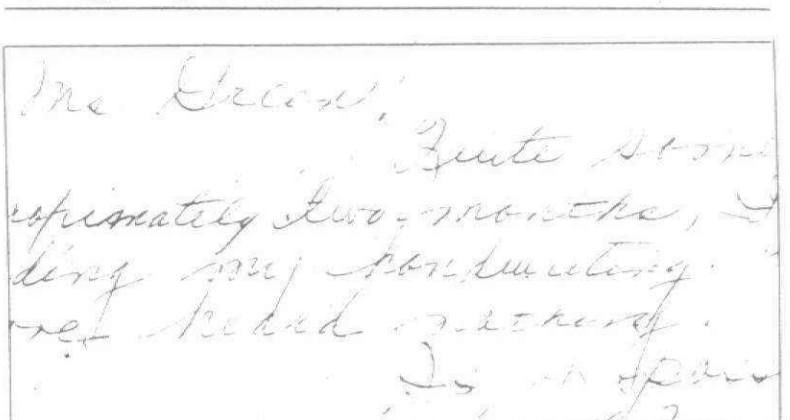 Ms. Green:
Quite some
roximately two months, I
ding my handwriting.
heard nothing.
Is